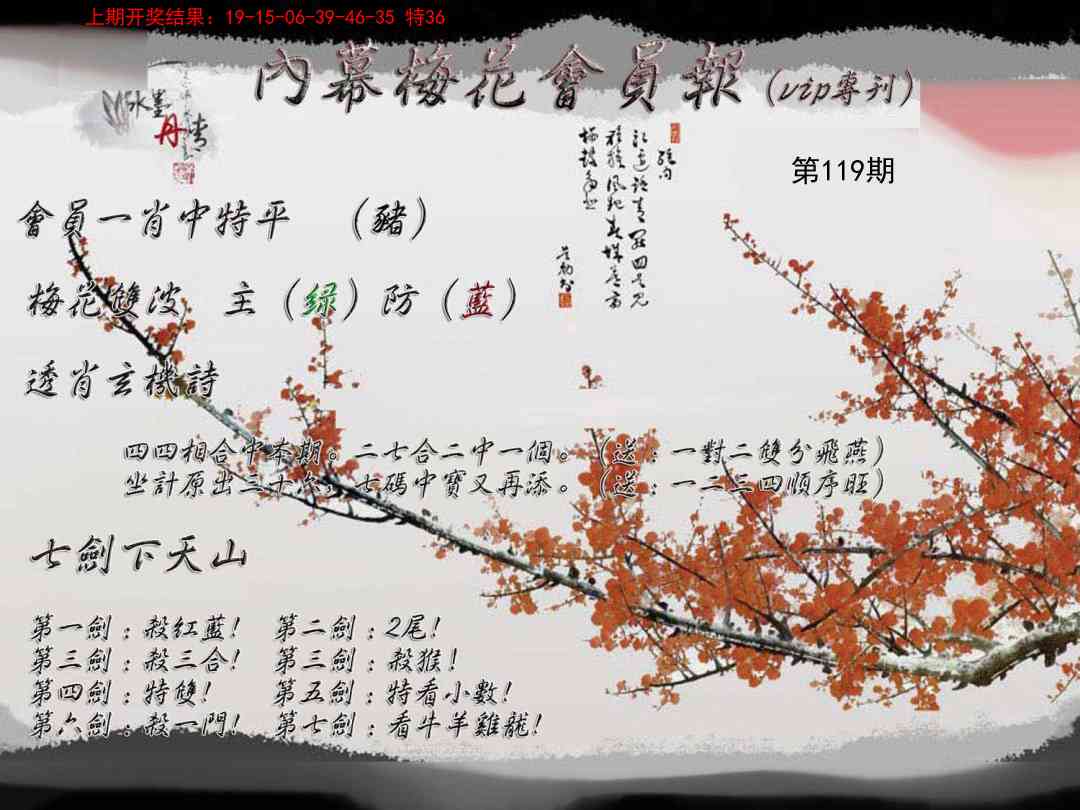 上期开奖结果：19-15-06-39-46-35 特36
內幕梅花會員報（vip專刊）
水墨
丹青
第119期
會員一肖中特平　（豬）
梅花雙波　主（绿）防（藍）
透肖玄機詩
四四相合中本期。二七合二中一個。（送：一對二雙分飛燕）
坐計原出三十六，七碼中寶又再添。（送：一二三四順序旺）
七劍下天山
第一劍：殺紅藍！　第二劍：2尾！
第三劍：殺三合！　第三劍：殺猴！
第四劍：特雙！　第五劍：特看小數！
第六劍：殺一門！　第七劍：看牛羊雞龍！